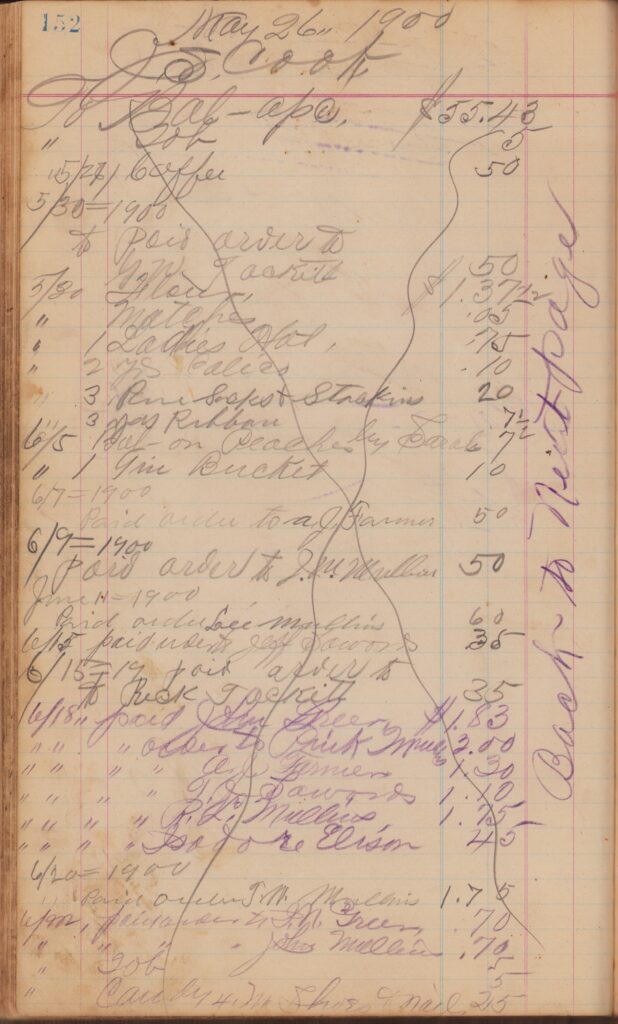 152
May 26 " 1900
J. S. Cook
To Bal - apc, $55.43
" Tob 5
5/26 1 Coffee 50
5/30 = 1900
to paid order to
Tackett 50
5/30 Flour, $1.37 1/2
" Matches .05
" 1 Ladies Hat, .75
" 2 yds Calico .10
" 3 Soaps & Stockins 20
" 3 yds Ribbon 7 1/2
6/5 Bal - on Peaches by Sarah 7 1/2
" 1 Tin Bucket 10
6/7 = 1900
Paid order to A J Farmer 50
6/9 = 1900
Paid order to J. M. Mullins 50
June 11 = 1900
Paid order Lee Mullins 60
6/15 paid order to Jeff 35
6/15 = 19 paid order to
to Tackett 35
6/18 " paid John Green $1.83
" " " order to 3.00
" " " Farmer 1.30
" " " " 1.10
" " " " R. L. Mullins 1.75
" " " " Isodore Elison 45
6/20 = 1900
Paid order T. W. Mullins 1.75
paid order to Green .70
" " " John Mullins .70
" Tob 5
" Candy 25
Back to Next page